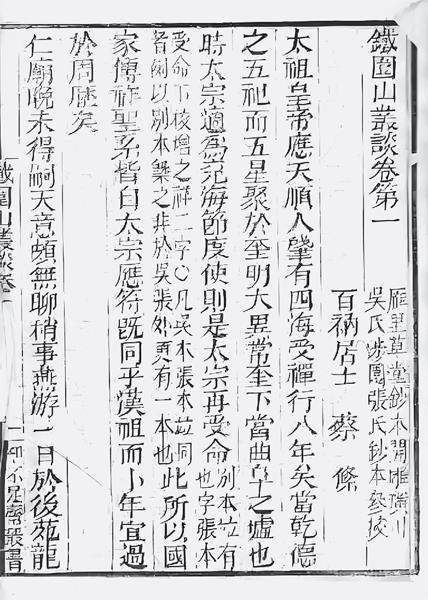 鐵圍山叢談卷第一
雁里草堂鈔本開雕璜川
吳氏涉園張氏鈔本參校
百衲居士 蔡絛
太祖皇帝應天順人肇有四海受禪行八年矣當乾德
之五祀而五星聚於奎明大異常奎下當曲阜之墟也
時太宗適為兗海節度使則是太宗再受命
別本竝有
也字張本
受命下校增之祥二字〇凡吳本張本竝同
者則以別本槩之非於吳張外更有一本也
此所以國
家傳祚聖系皆自太宗應符既同乎漢祖而卜年宜過
於周歷矣
仁廟晚未得嗣天意頗無聊稍事燕游一日於後苑龍
鐵圍山叢談卷一
一
知不足齋叢書